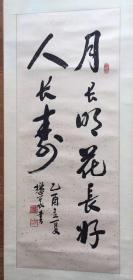 月长明花长好
人长寿
乙酉立夏